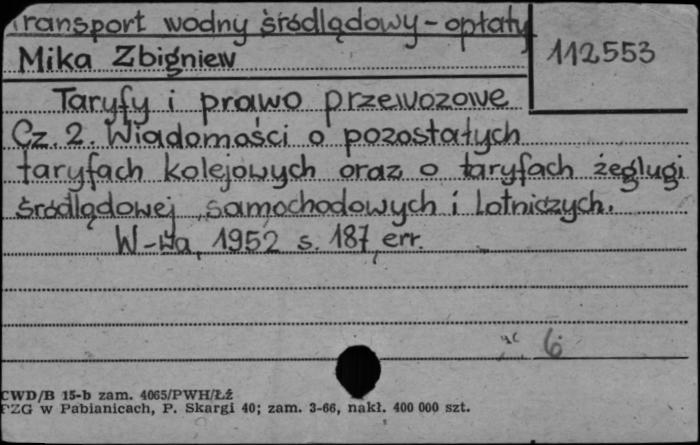 Transport wodny śródlądowy - opłaty
Mika Zbigniew
112553
Taryfy i prawo przewozowe
Cz. 2. Wiadomości o pozostałych
taryfach kolejowych oraz o taryfach żeglugi
śródlądowej, samochodowych i lotniczych.
W-wa, 1952 s. 187, err.
6
CWD/B 15-b zam. 4065/PWH/Łż
PZG w Pabianicach, P. Skargi 40; zam. 3-66, nakł. 400 000 szt.